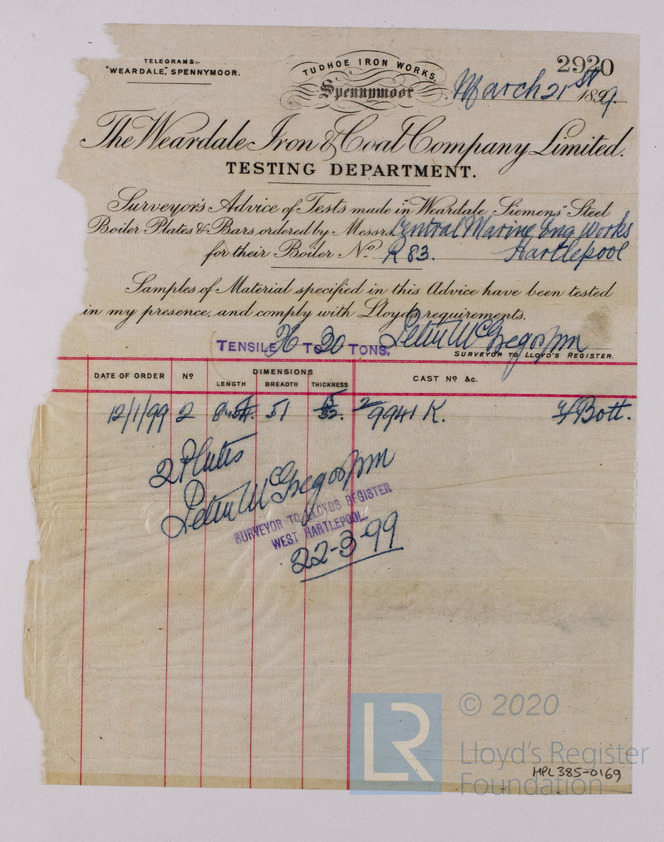 TELEGRAMS:-
"WEARDALE," SPENNYMOOR.
TUDHOE IRON WORKS,
Spennymoor
2920
March 21st 1899.
The Weardale Iron & Coal Company Limited.
TESTING DEPARTMENT.
Surveyor's Advice of Tests made in "Weardale Siemens" Steel
Boiler Plates & Bars ordered by Messrs Central Marine Eng Works
for their Boiler No. R 83. Hartlepool
Samples of Material specified in this Advice have been tested
in my presence, and comply with Lloyds requirements.
TENSILE 26 TO 30 TONS. Peter McGregor
SURVEYOR TO LLOYD'S REGISTER.
DATE OF ORDER No DIMENSIONS LENGTH BREADTH THICKNESS CAST No &c.
12/1/99 2 51 15/32 2/9941 K. Bott.
2 Plates
Peter McGregor
SURVEYOR TO LLOYDS REGISTER
WEST HARTLEPOOL.
22-3-99
LR
© 2020
Lloyd's Register
Foundation
HPL385-0169